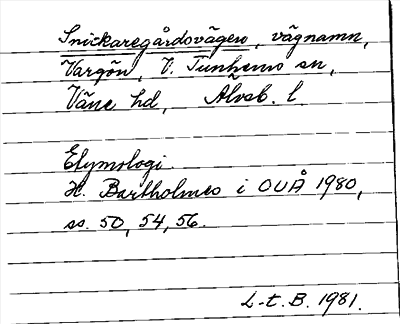 Snickaregårdsvägen, vägnamn,
Vargön, V. Tunhems sn,
Väne hd, Älvsb. l
Etymologi
H. Bartholmes i OUÅ 1980,
ss. 50, 54, 56.
L-t. B. 1981.